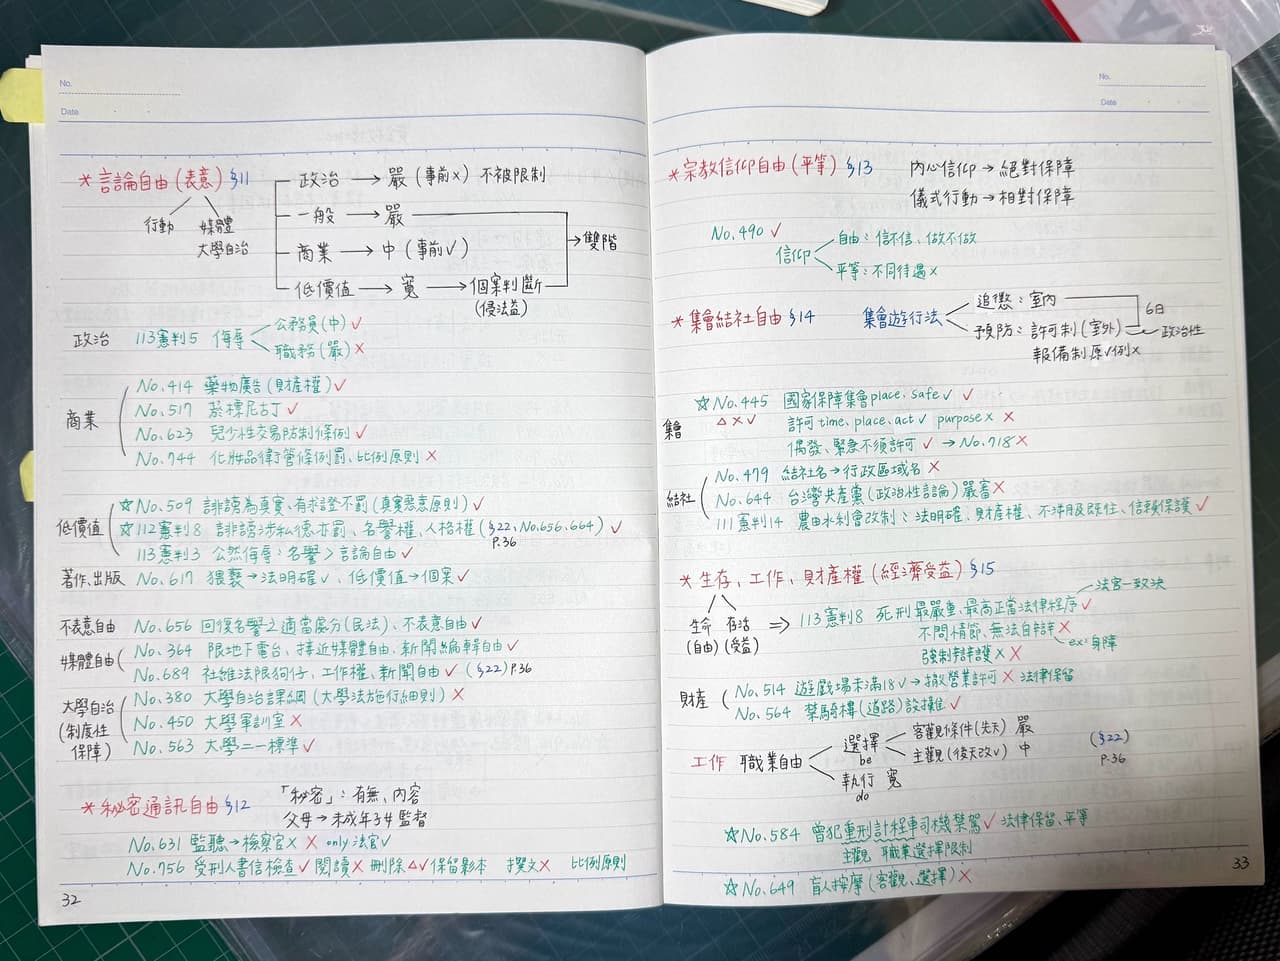 No.
Date
*言論自由(表意)§11
行動 媒體
大學自治
政治→嚴(事前×)不被限制
一般→嚴
商業→中(事前✓)
低價值→寬→個案判斷
(侵法益)
→雙階
政治 113憲判5 侮辱 公務員(中)✓
職務(嚴)×
商業
No.414 藥物廣告(財產權)✓
No.517 菸標尼古丁✓
No.623 兒少性交易防制條例✓
No.744 化妝品衛管條例罰、比例原則×
低價值
☆No.509 誹謗為真實、有求證不罰(真實惡意原則)✓
☆112憲判8 誹謗涉私德亦罰、名譽權、人格權(§22、No.656.664)✓
P.36
113憲判3 公然侮辱:名譽>言論自由✓
著作、出版 No.617 猥褻→法明確✓、低價值→個案✓
不表意自由 No.656 回復名譽之適當處分(民法)、不表意自由✓
媒體自由
No.364 限地下電台、接近媒體自由、新聞編輯自由✓
No.689 社維法限狗仔、工作權、新聞自由✓(§22)P.36
大學自治
(制度性
保障)
No.380 大學自治課綱(大學法施行細則)×
No.450 大學軍訓室×
No.563 大學二一標準✓
*秘密通訊自由§12
「秘密」:有無、內容
父母→未成年子女監督
No.631 監聽→檢察官× × only法官✓
No.756 受刑人書信檢查✓閱讀×刪除△✓保留影本 撰文× 比例原則
32
No.
Date
*宗教信仰自由(平等)§13
內心信仰→絕對保障
儀式行動→相對保障
No.490✓
信仰
自由:信不信、做不做
平等:不同待遇×
*集會結社自由§14
集會遊行法
追懲:室內
預防:許可制(室外)
報備制原✓例×
6日
政治性
集會
☆No.445 國家保障集會place、safe✓ ✓
△×✓ 許可time、place、act✓ purpose× ×
偶發、緊急不須許可✓→No.718×
結社
No.479 結社名→行政區域名×
No.644 台灣共產黨(政治性言論)嚴審×
111憲判14 農田水利會改制:法明確、財產權、不溯及既往、信賴保護✓
*生存、工作、財產權(經濟受益)§15
生命 存活
(自由)(受益)
⇒113憲判8 死刑 最嚴重、最高正當法律程序✓
法官一致決
不問情節、無法自辯×
ex:身障
強制辯護× ×
財產
No.514 遊戲場未滿18✓→撤營業許可×法律保留
No.564 禁騎樓(道路)設攤✓
工作 職業自由
選擇
be
客觀條件(先天)嚴
主觀(後天改✓)中
執行 寬
do
(§22)
P.36
☆No.584 曾犯重刑計程車司機禁駕✓法律保留、平等
主觀 職業選擇限制
☆No.649 盲人按摩(客觀、選擇)×
33